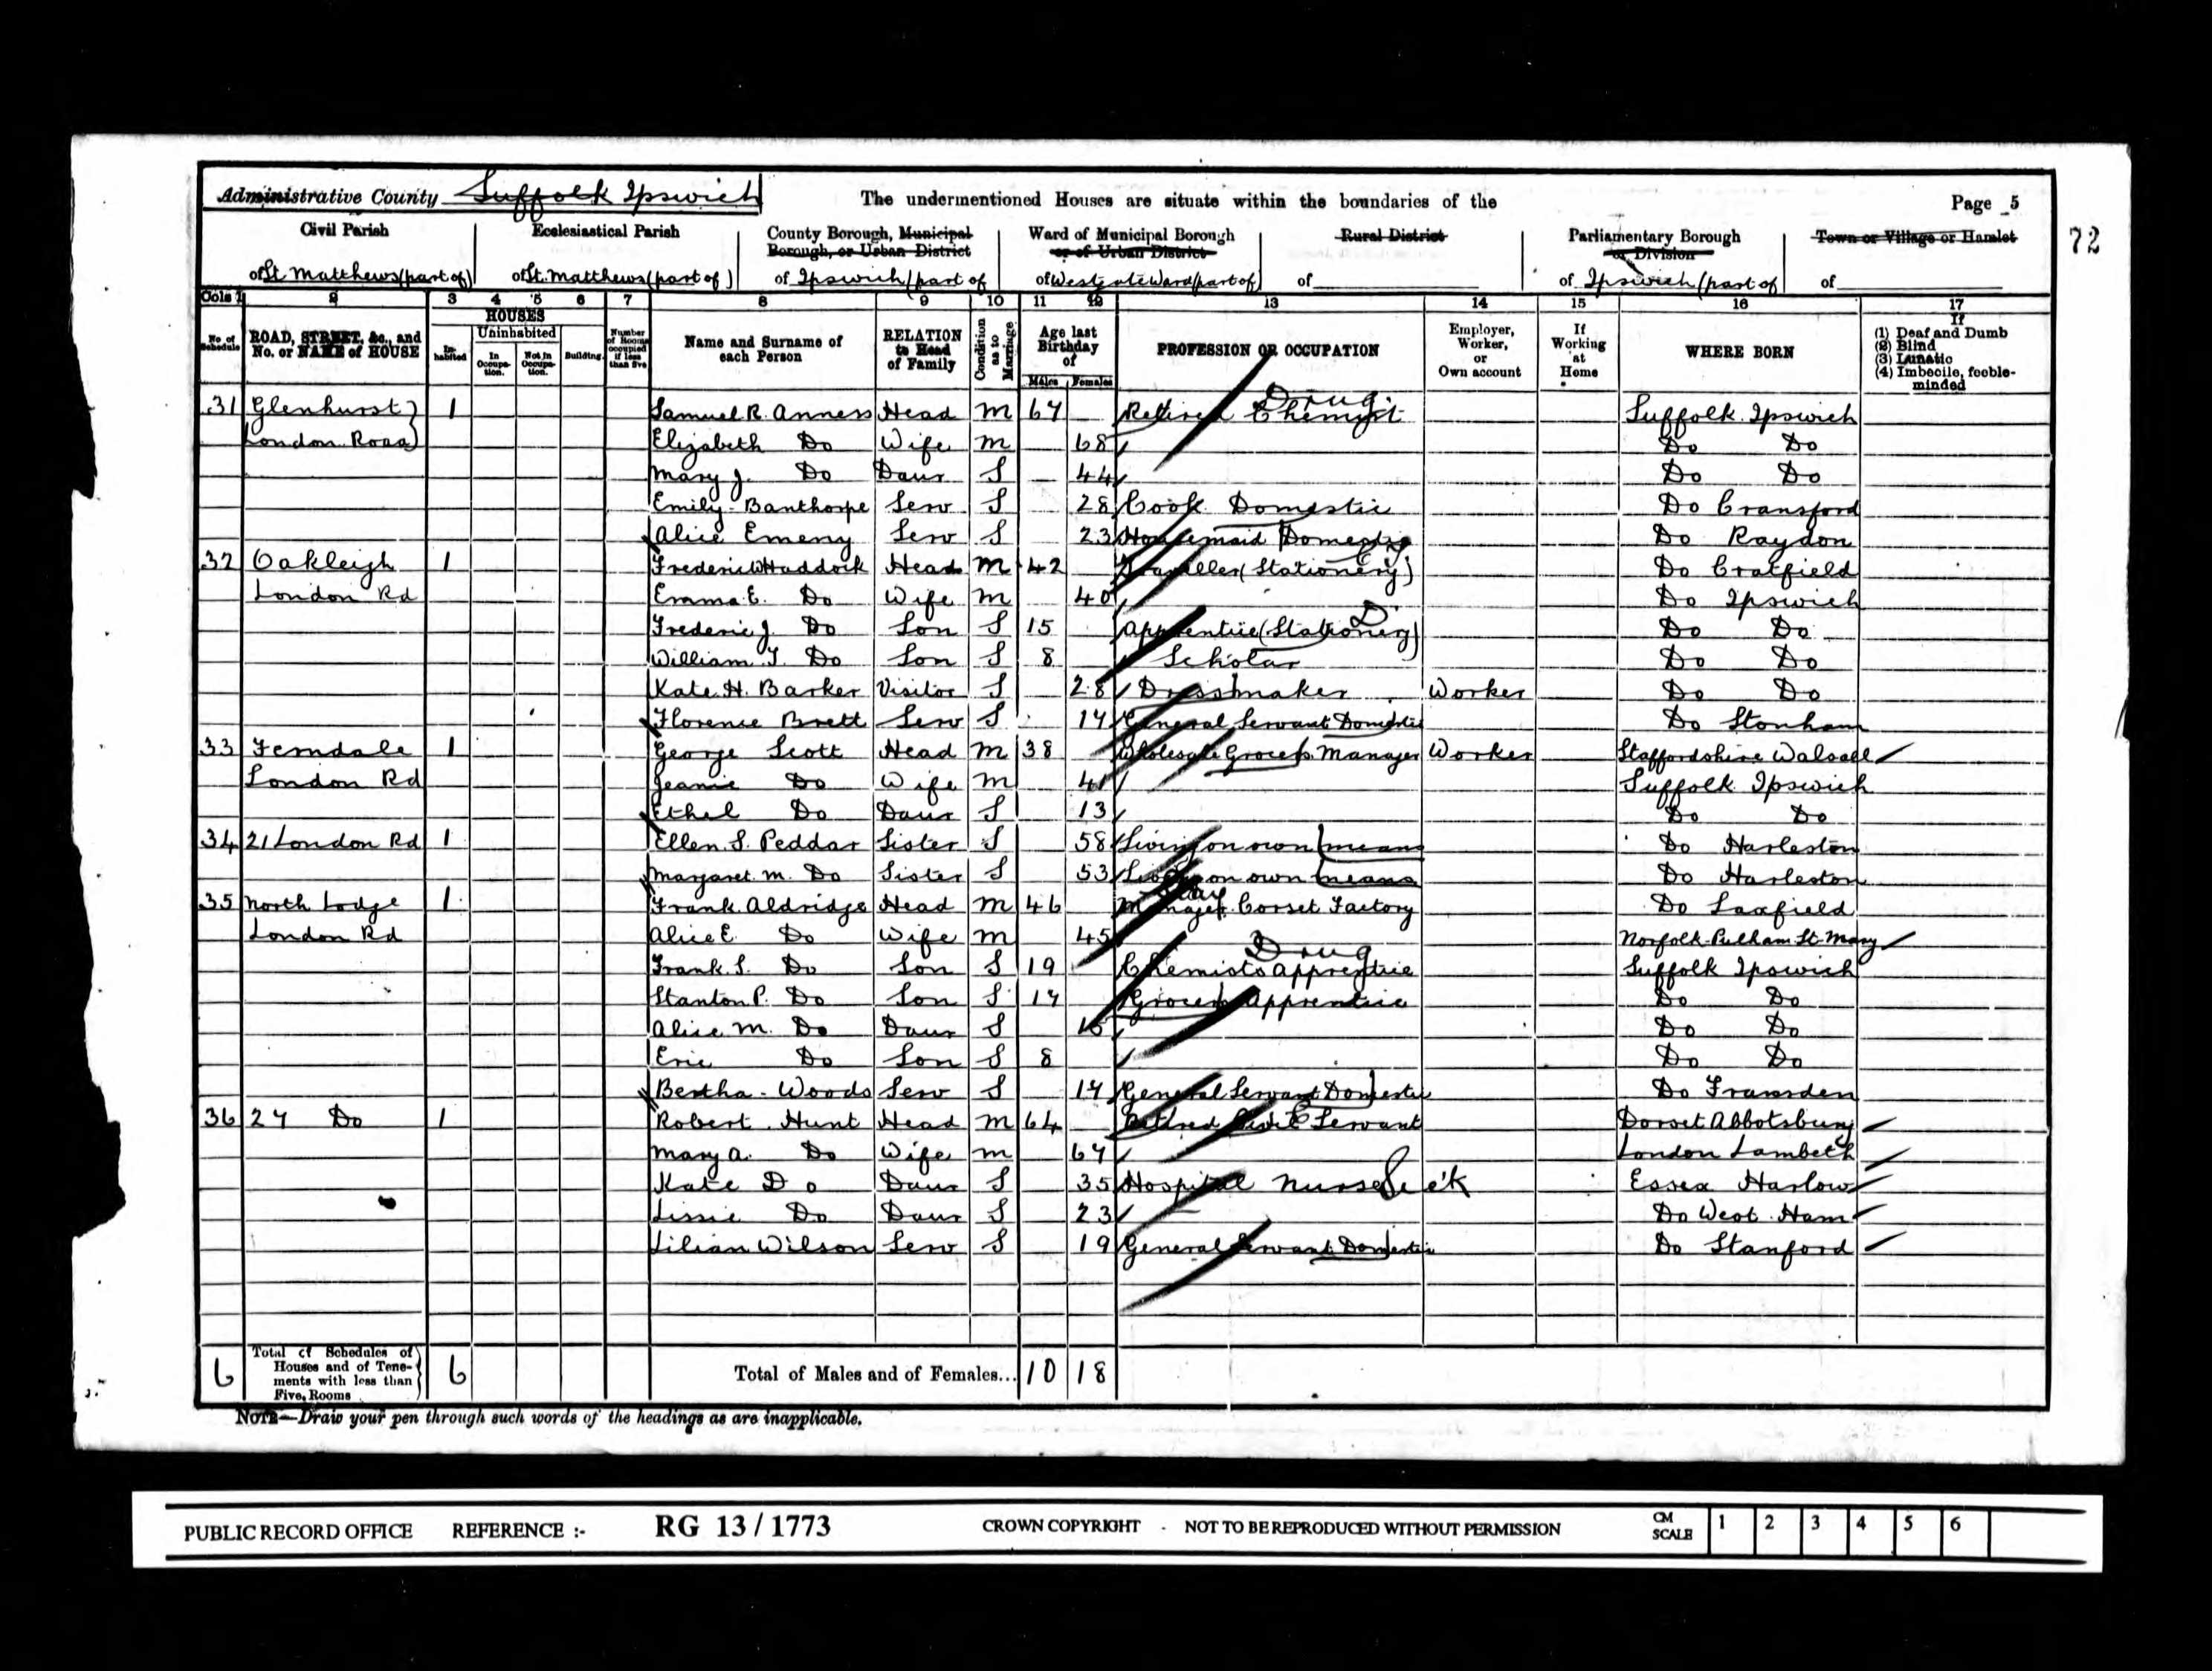 Administrative County Suffolk Ipswich The undermentioned Houses are situate within the boundaries of the Page 5
72
Civil Parish Ecclesiastical Parish County Borough, Municipal Borough, or Urban District Ward of Municipal Borough or of Urban District Rural District Parliamentary Borough or Division Town or Village or Hamlet
of St. Matthews (part of) of St. Matthews (part of) of Ipswich (part of of Westgate Ward (part of) of of Ipswich (part of of
Cols 1 2 3 4 5 6 7 8 9 10 11 12 13 14 15 16 17
No. of Schedule ROAD, STREET, &c., and No. or NAME of HOUSE HOUSES Inhabited Uninhabited In Occupation. Not in Occupation. Building Number of Rooms occupied if less than five Name and Surname of each Person RELATION to Head of Family Condition as to Marriage Age last Birthday of Males Females PROFESSION OR OCCUPATION Employer, Worker, or Own account If Working at Home WHERE BORN If (1) Deaf and Dumb (2) Blind (3) Lunatic (4) Imbecile, feeble-minded
31 Glenhurst 1 Samuel R. Anness Head M 67 Retired Chemist Drug Suffolk Ipswich
London Road Elizabeth Do Wife M 68 Do Do
Mary J. Do Daur S 44 Do Do
Emily Banthorpe Serv S 28 Cook Domestic Do Cransford
Alice Emeny Serv S 23 Housemaid Domestic Do Raydon
32 Oakleigh 1 Frederic W Haddock Head M 42 Traveller (Stationery) Do Cratfield
London Rd Emma E. Do Wife M 40 Do Ipswich
Frederic J. Do Son S 15 Apprentice (Stationery) D. Do Do
William T. Do Son S 8 Scholar Do Do
Kate H. Barker Visitor S 28 Dressmaker Worker Do Do
Florence Brett Serv S 17 General Servant Domestic Do Stonham
33 Ferndale 1 George Scott Head M 38 Wholesale Grocers Manager Worker Staffordshire Walsall
London Rd Jeanie Do Wife M 41 Suffolk Ipswich
Ethel Do Daur S 13 Do Do
34 21 London Rd 1 Ellen S. Peddar Sister S 58 Living on own means Do Harleston
Margaret M. Do Sister S 53 Living on own means Do Harleston
35 North Lodge 1 Frank Aldridge Head M 46 Manager Corset Factory Do Laxfield
London Rd Alice E. Do Wife M 45 Norfolk Pulham St. Mary
Frank S. Do Son S 19 Chemists Apprentice Drug Suffolk Ipswich
Stanton P. Do Son S 17 Grocers Apprentice Do Do
Alice M. Do Daur S Do Do
Eric Do Son S 8 Do Do
Bertha Woods Serv S 17 General Servant Domestic Do Framsden
36 27 Do 1 Robert Hunt Head M 64 Retired Civil Servant Dorset Abbotsbury
Mary A. Do Wife M 67 London Lambeth
Kate Do Daur S 35 Hospital Nurse Essex Harlow
Lissie Do Daur S 23 Do West Ham
Lilian Wilson Serv S 19 General Servant Domestic Do Stanford
6 Total of Schedules of Houses and of Tenements with less than Five Rooms 6 Total of Males and of Females... 10 18
NOTE—Draw your pen through such words of the headings as are inapplicable.
PUBLIC RECORD OFFICE REFERENCE :- RG 13 / 1773 CROWN COPYRIGHT - NOT TO BE REPRODUCED WITHOUT PERMISSION CM SCALE 1 2 3 4 5 6